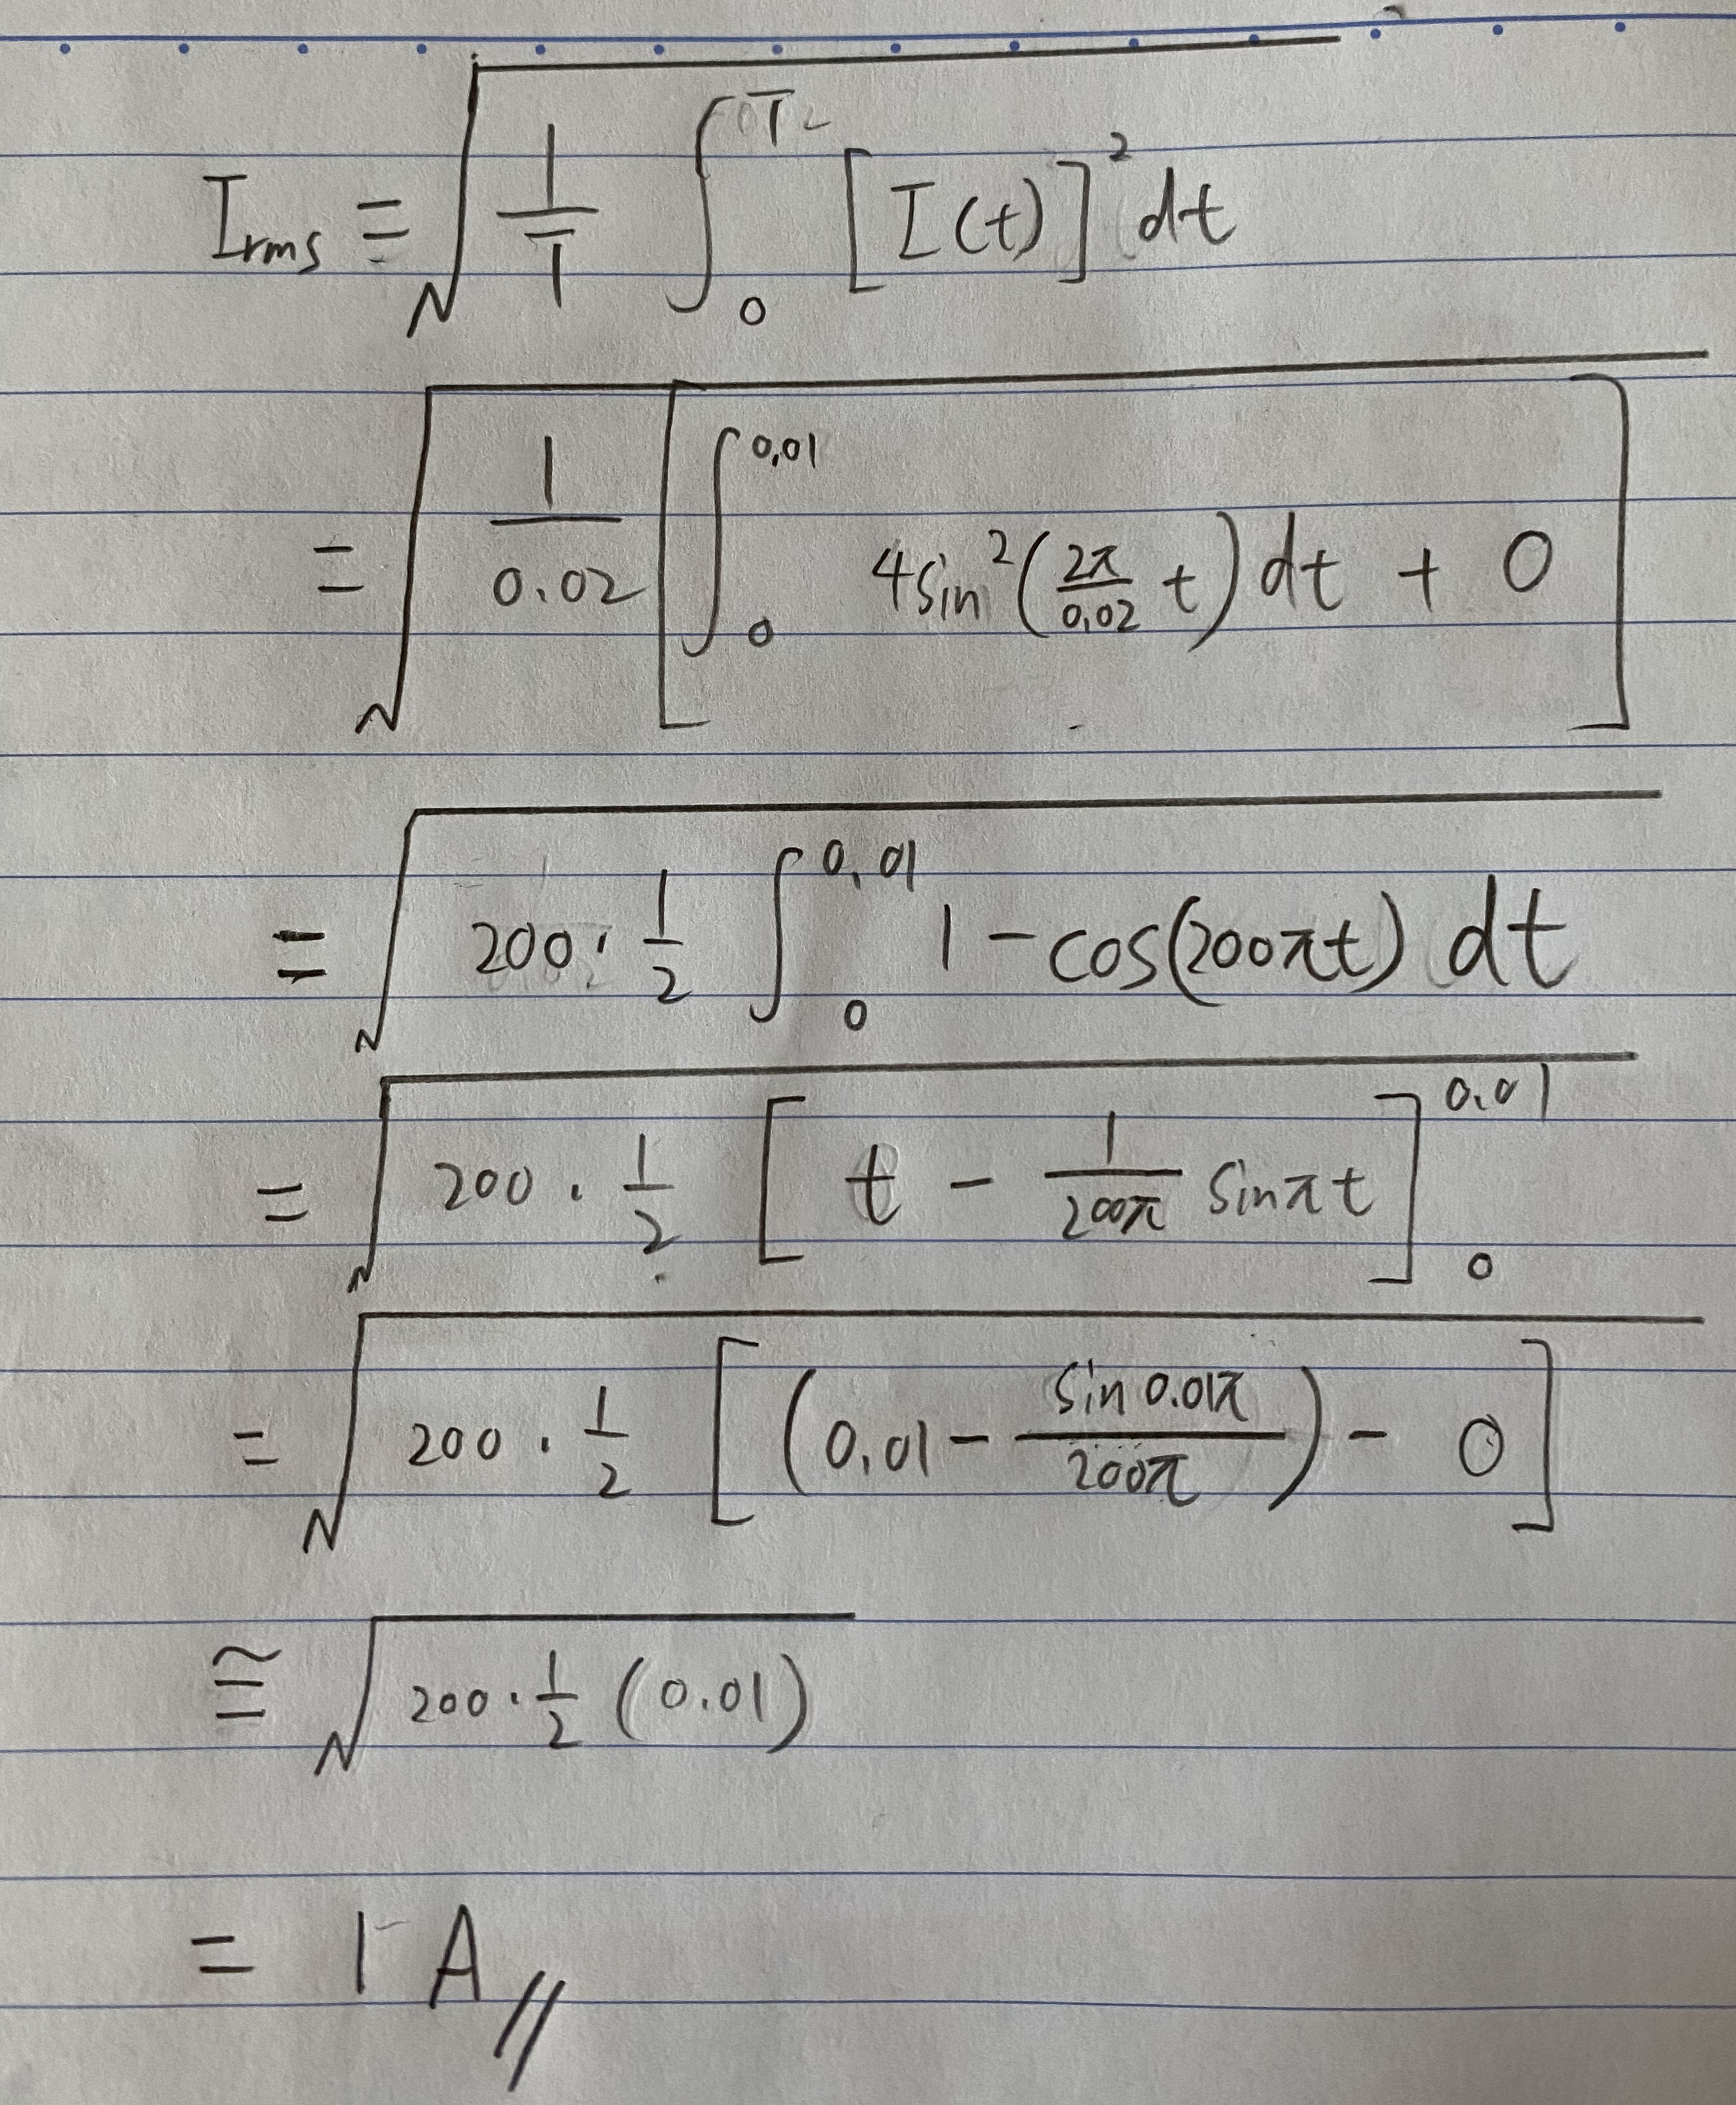 I_rms = √( 1/T ∫_0^T [I(t)]² dt )
= √( 1/0.02 [ ∫_0^0.01 4sin²(2π/0.02 t) dt + 0 ] )
= √( 200 · 1/2 ∫_0^0.01 1 - cos(200πt) dt )
= √( 200 · 1/2 [ t - 1/200π sinπt ]_0^0.01 )
= √( 200 · 1/2 [ (0.01 - sin0.01π/200π) - 0 ] )
≅ √( 200 · 1/2 (0.01) )
= 1 A //